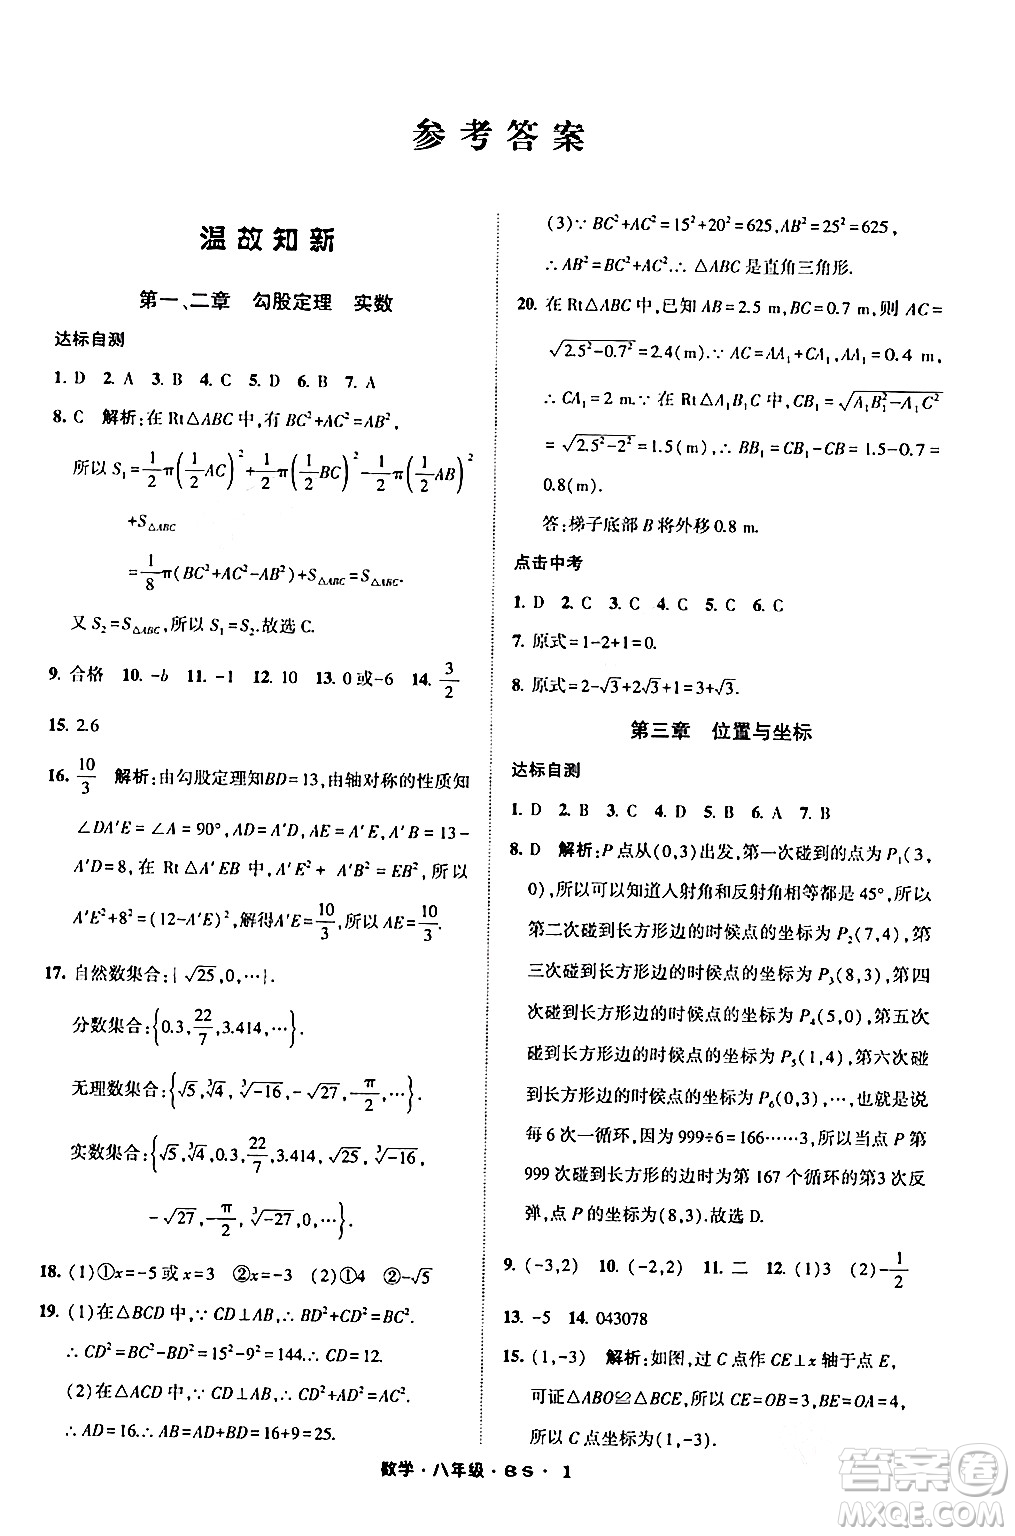 参考答案
温故知新
第一、二章　勾股定理　实数
达标自测
1. D　2. A　3. B　4. C　5. D　6. B　7. A
8. C　解析:在 Rt△ABC 中,有 BC²+AC²=AB²,
所以 S₁=1/2π(1/2AC)²+1/2π(1/2BC)²-1/2π(1/2AB)²
+S△ABC
=1/8π(BC²+AC²-AB²)+S△ABC=S△ABC.
又 S₂=S△ABC,所以 S₁=S₂.故选 C.
9. 合格　10. -b　11. -1　12. 10　13. 0 或-6　14. 3/2
15. 2.6
16. 10/3　解析:由勾股定理知BD=13,由轴对称的性质知
∠DA′E=∠A=90°,AD=A′D,AE=A′E,A′B=13-
A′D=8,在 Rt△A′EB 中,A′E²+A′B²=EB²,所以
A′E²+8²=(12-A′E)²,解得A′E=10/3,所以 AE=10/3.
17. 自然数集合:{√25,0,…};
分数集合:{0.3,22/7,3.414,…};
无理数集合:{√5,∛4,∛-16,-√27,-π/2,…};
实数集合:{√5,∛4,0.3,22/7,3.414,√25,∛-16,
-√27,-π/2,∛-27,0,…}.
18. (1)①x=-5或x=3　②x=-3　(2)①4　②-√5
19. (1)在△BCD 中,∵CD⊥AB,∴BD²+CD²=BC².
∴CD²=BC²-BD²=15²-9²=144.∴CD=12.
(2)在△ACD 中,∵CD⊥AB,∴CD²+AD²=AC².
∴AD=16.∴AB=AD+BD=16+9=25.
(3)∵BC²+AC²=15²+20²=625,AB²=25²=625,
∴AB²=BC²+AC².∴△ABC 是直角三角形.
20. 在 Rt△ABC 中,已知 AB=2.5 m,BC=0.7 m,则 AC=
√2.5²-0.7²=2.4(m).∵AC=AA₁+CA₁,AA₁=0.4 m,
∴CA₁=2 m.∵在 Rt△A₁B₁C 中,CB₁=√A₁B₁²-A₁C²
=√2.5²-2²=1.5(m),∴BB₁=CB₁-CB=1.5-0.7=
0.8(m).
答:梯子底部 B 将外移 0.8 m.
点击中考
1. D　2. C　3. C　4. C　5. C　6. C
7. 原式=1-2+1=0.
8. 原式=2-√3+2√3+1=3+√3.
第三章　位置与坐标
达标自测
1. D　2. B　3. C　4. D　5. D　6. A　7. B
8. D　解析:P 点从(0,3)出发,第一次碰到的点为P₁(3,
0),所以可以知道入射角和反射角相等都是 45°,所以
第二次碰到长方形边的时候点的坐标为 P₂(7,4),第
三次碰到长方形边的时候点的坐标为 P₃(8,3),第四
次碰到长方形边的时候点的坐标为 P₄(5,0),第五次
碰到长方形边的时候点的坐标为 P₅(1,4),第六次碰
到长方形边的时候点的坐标为 P₆(0,3),…,也就是说
每 6 次一循环,因为 999÷6=166……3,所以当点 P 第
999 次碰到长方形的边时为第 167 个循环的第3 次反
弹,点 P 的坐标为(8,3).故选 D.
9. (-3,2)　10. (-2,2)　11. 二　12. (1)3　(2)-1/2
13. -5　14. 043078
15. (1,-3)　解析:如图,过 C 点作 CE⊥x 轴于点 E,
可证△ABO≌△BCE,所以 CE=OB=3,BE=OA=4,
所以 C 点坐标为(1,-3).
数学·八年级·BS·1
答案圈
MXQE.COM